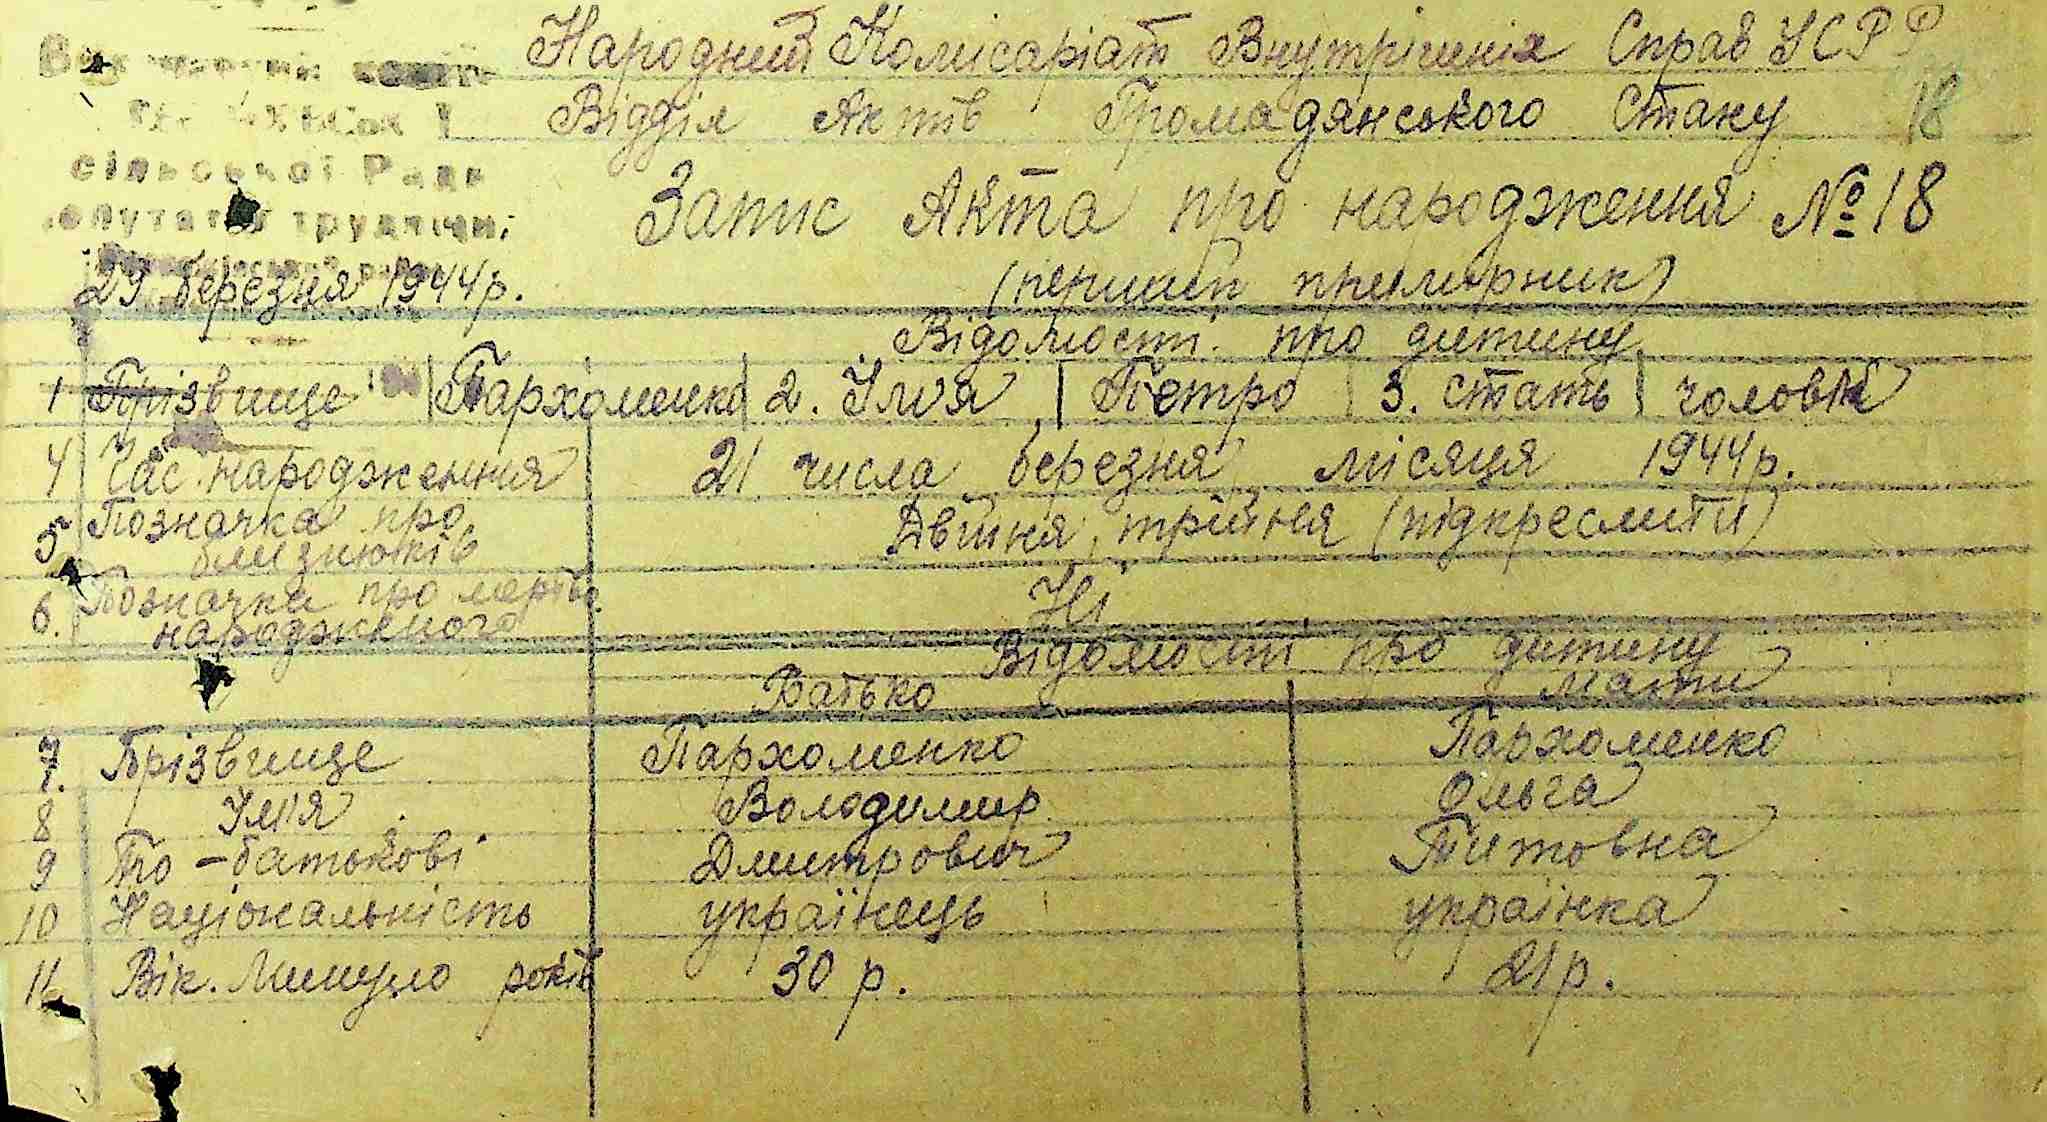 Народний Комісаріат Внутрішніх Справ УСРР
Відділ Актів Громадянського Стану 18
сільської Ради
депутатів трудящих
Запис Акта про народження № 18
29 березня 1944 р.
(перший примірник)
Відомості про дитину
1 Прізвище Пархоменко 2. Ім'я Петро 3. стать чоловіч
4 Час народження 21 числа березня місяця 1944 р.
5 Позначка про близнюків Двійня, трійня (підкреслити)
6. Позначка про мертво народженого Ні
Відомості про дитину
Батько Мати
7. Прізвище Пархоменко Пархоменко
8 Ім'я Володимир Ольга
9 По-батькові Дмитрович Титовна
10 Національність українець українка
11 Вік. Минуло років 30 р. 21 р.